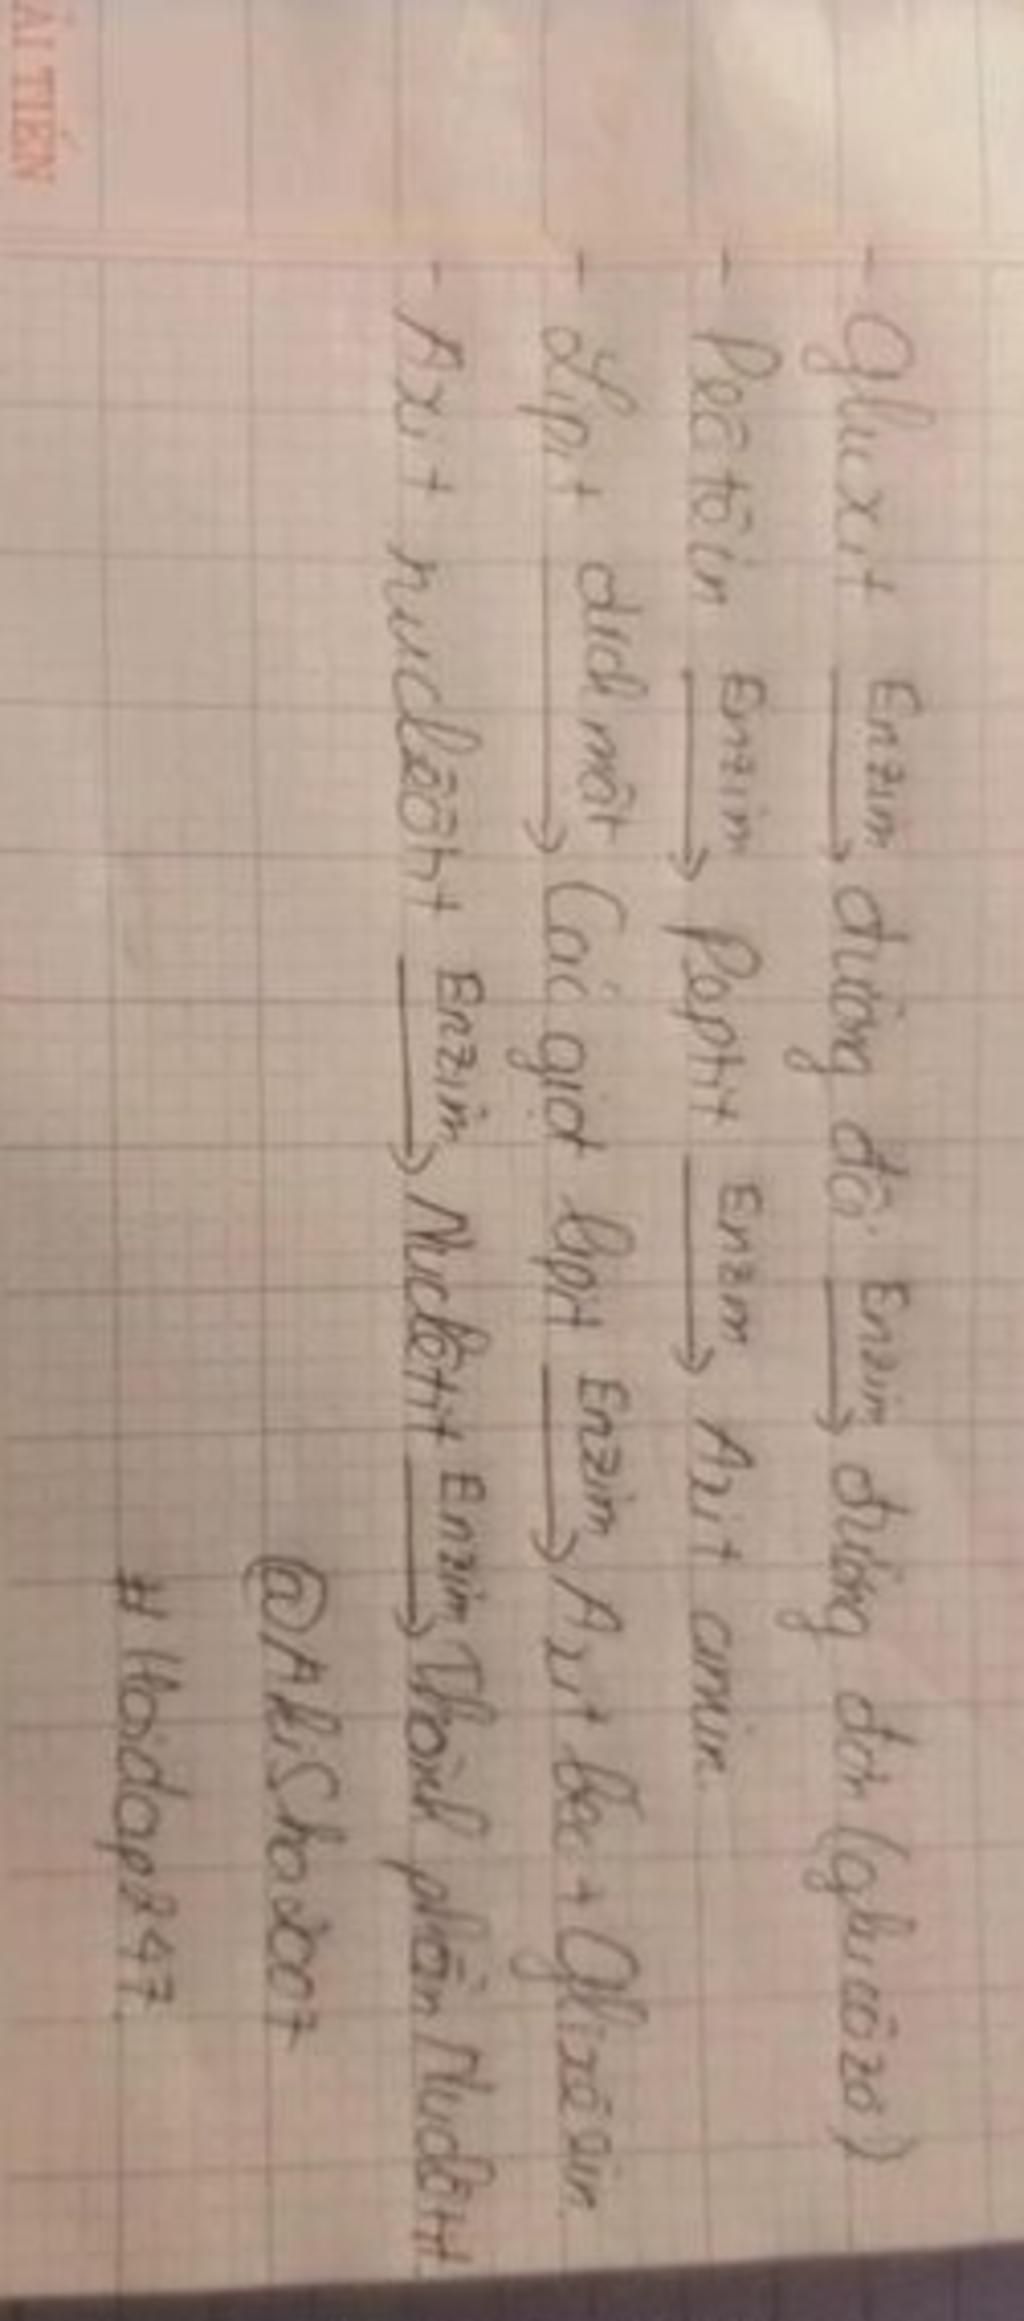 - Gluxit Enzim → đường đôi Enzim → đường đơn (glucôzơ)
- Prôtêin Enzim → Peptit Enzim → Axit amin.
- Lipit dịch mật → Các giọt lipit Enzim → Axit béo + Glixêrin.
- Axit nuclêôtit Enzim → Nuclêôtit Enzim → Thành phần Nuclêôtit
@AkiSho2007
#Hoidap247.
ẢI TIẾN